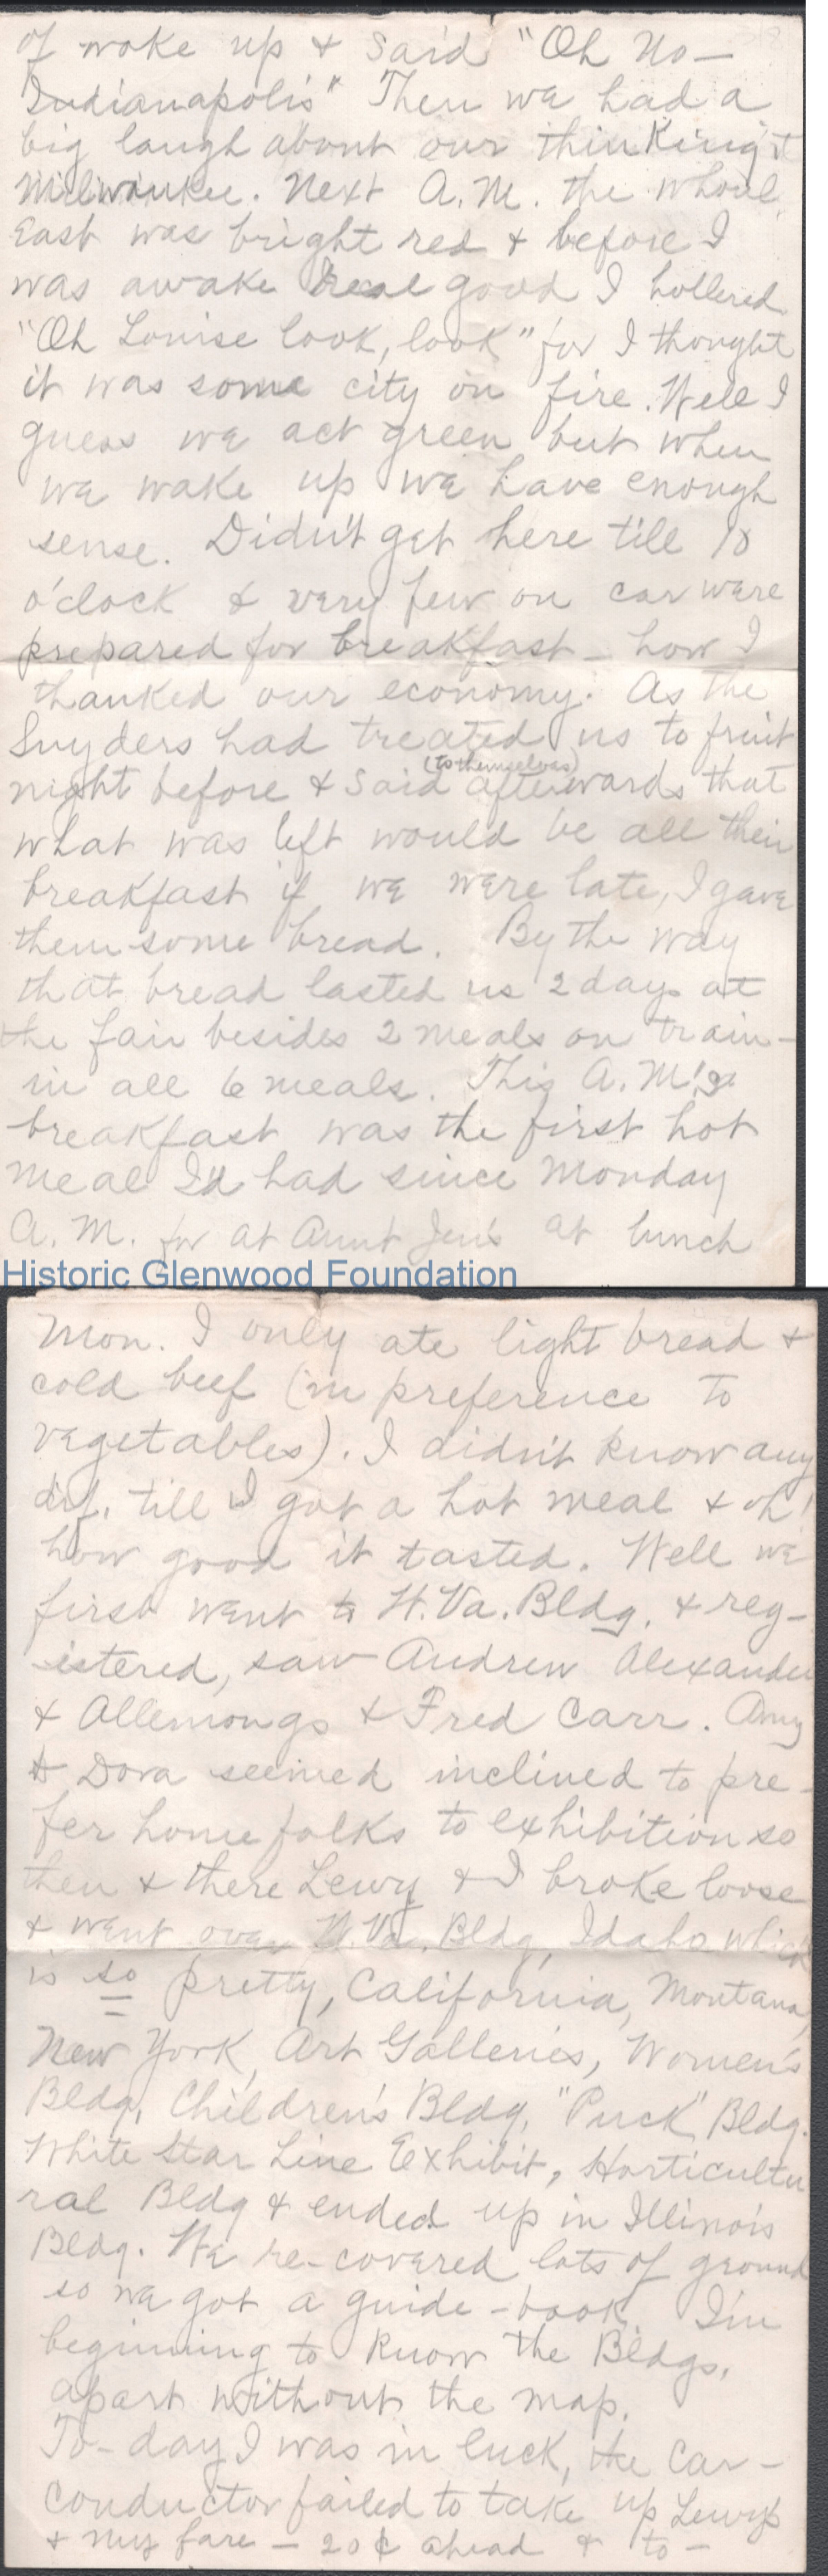 of woke up & said "Oh No—
Indianapolis" Then we had a
big laugh about our thinking't
Milwaukee. Next A.M. the whole
East was bright red & before I
was awake real good I hollered
"Oh Louise look, look" for I thought
it was some city on fire. Well I
guess we act green but when
we wake up we have enough
sense. Didn't get here till 10
o'clock & very few on car were
prepared for breakfast – how I
thanked our economy. As the
Snyders had treated us to fruit
night before & said (to themselves) afterwards that
what was left would be all their
breakfast if we were late, I gave
them some bread. By the way
that bread lasted us 2 days at
the fair besides 2 meals on train –
in all 6 meals. This A.M.'s
breakfast was the first hot
meal I'd had since Monday
A.M. for at Aunt Jen's at lunch
Historic Glenwood Foundation
Mon. I only ate light bread &
cold beef (in preference to
vegetables). I didn't know any
dif. till I got a hot meal & oh!
how good it tasted. Well we
first went to W.Va. Bldg. & reg-
istered, saw Andrew Alexander
& Allemongs & Fred Carr. Amy
& Dora seemed inclined to pre-
fer home folks to exhibition so
then & there Lewy & I broke loose
& went over W.Va. Bldg, Idaho which
is so pretty, California, Montana,
New York, Art Galleries, Women's
Bldg, Children's Bldg, "Puck" Bldg.
White Star Line Exhibit, Horticultu
ral Bldg & ended up in Illinois
Bldg. We re-covered lots of ground
so we got a guide-book I'm
beginning to know the Bldgs.
apart without the map.
To-day I was in luck, the car-
conductor failed to take up Lewy's
& my fare – 20¢ ahead & to –